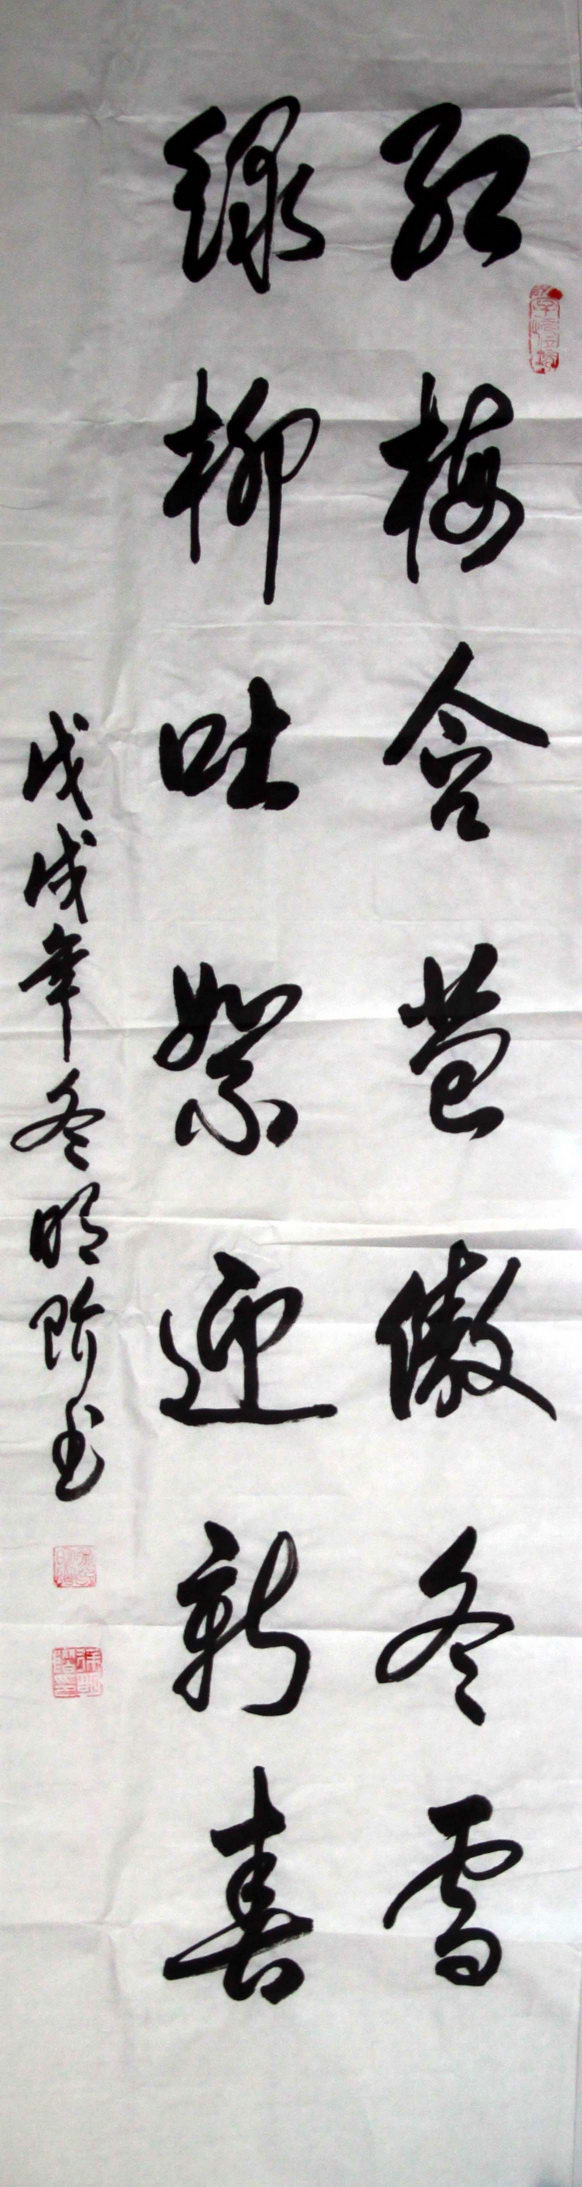 红梅含苞傲冬雪
绿柳吐絮迎新春
戊戌年冬明阶书